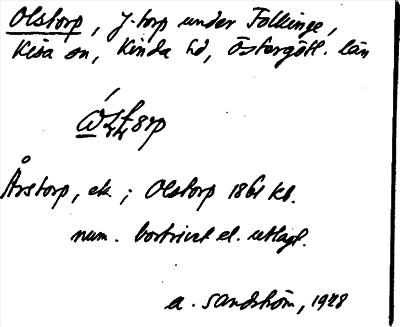 Olstorp, J. torp under Folkinge,
Kisa sn, Kinda hd, Östergötl. län
Årstorp, ek.; Olstorp 1868 kb.
num. bortrivet el. utlagt.
A. Sandström, 1928